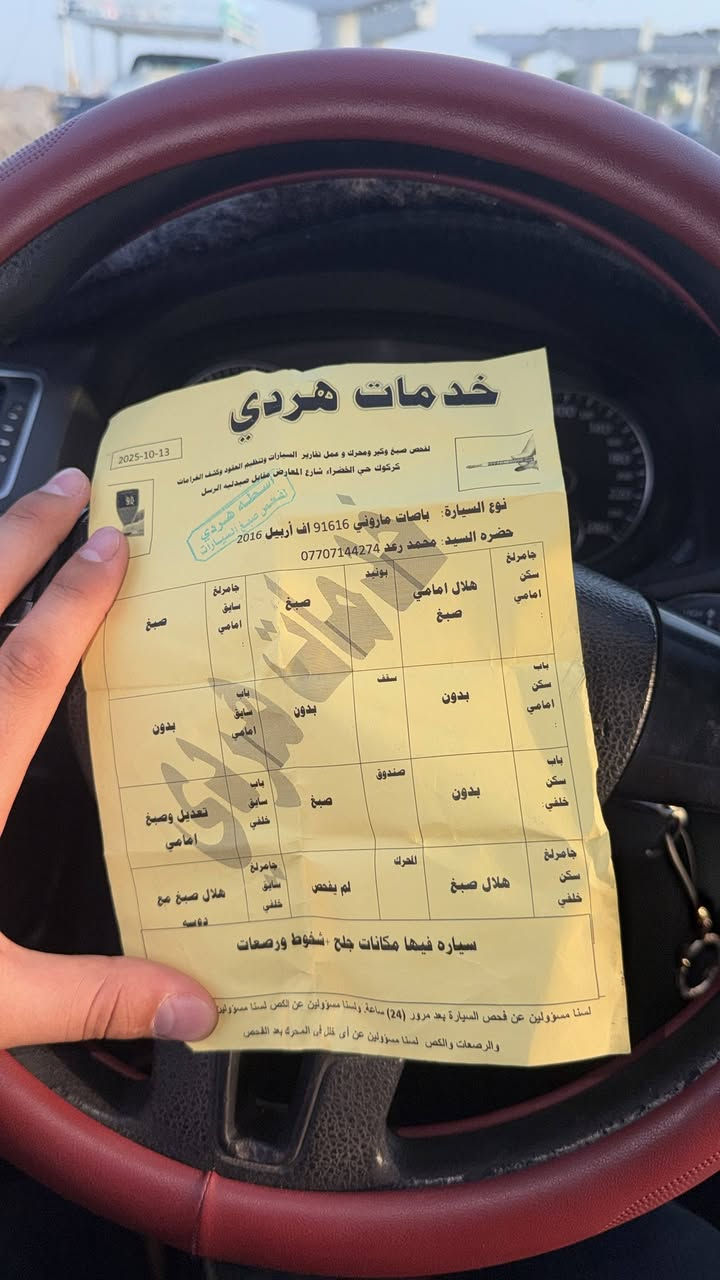 خدمات هردي
2025-10-13
لفحص صبغ وكير ومحرك و عمل تقارير السيارات وتنظيم العقود وكشف الغرامات
كركوك حي الخضراء شارع المعارض مقابل صيدليه الرسل
اسطه هردي
لفحص صبغ السيارات
نوع السيارة: باصات ماروني 91616 اف أربيل 2016
حضره السيد: محمد رعد 07707144274
جامرلغ سكن امامي :
هلال امامي صبغ
بونيد
صبغ
جامرلغ سايق امامي :
صبغ
باب سكن امامي :
بدون
سقف
بدون
باب سايق امامي
بدون
باب سكن خلفي:
بدون
صندوق
صبغ
باب سايق خلفي
تعديل وصبغ امامي
جامرلغ سكن خلفي
هلال صبغ
لم يفحص
جامرلغ سايق خلفي
هلال صبغ مع دوسه
سياره فيها مكانات جلح +شخوط ورصعات
لسنا مسؤولين عن فحص السيارة بعد مرور (24) ساعة ولسنا مسؤولين عن الكص لسنا مسؤولين
والرصعات والكص لسنا مسؤولين عن أي خلل في المحرك بعد الفحص
خدمات هردي